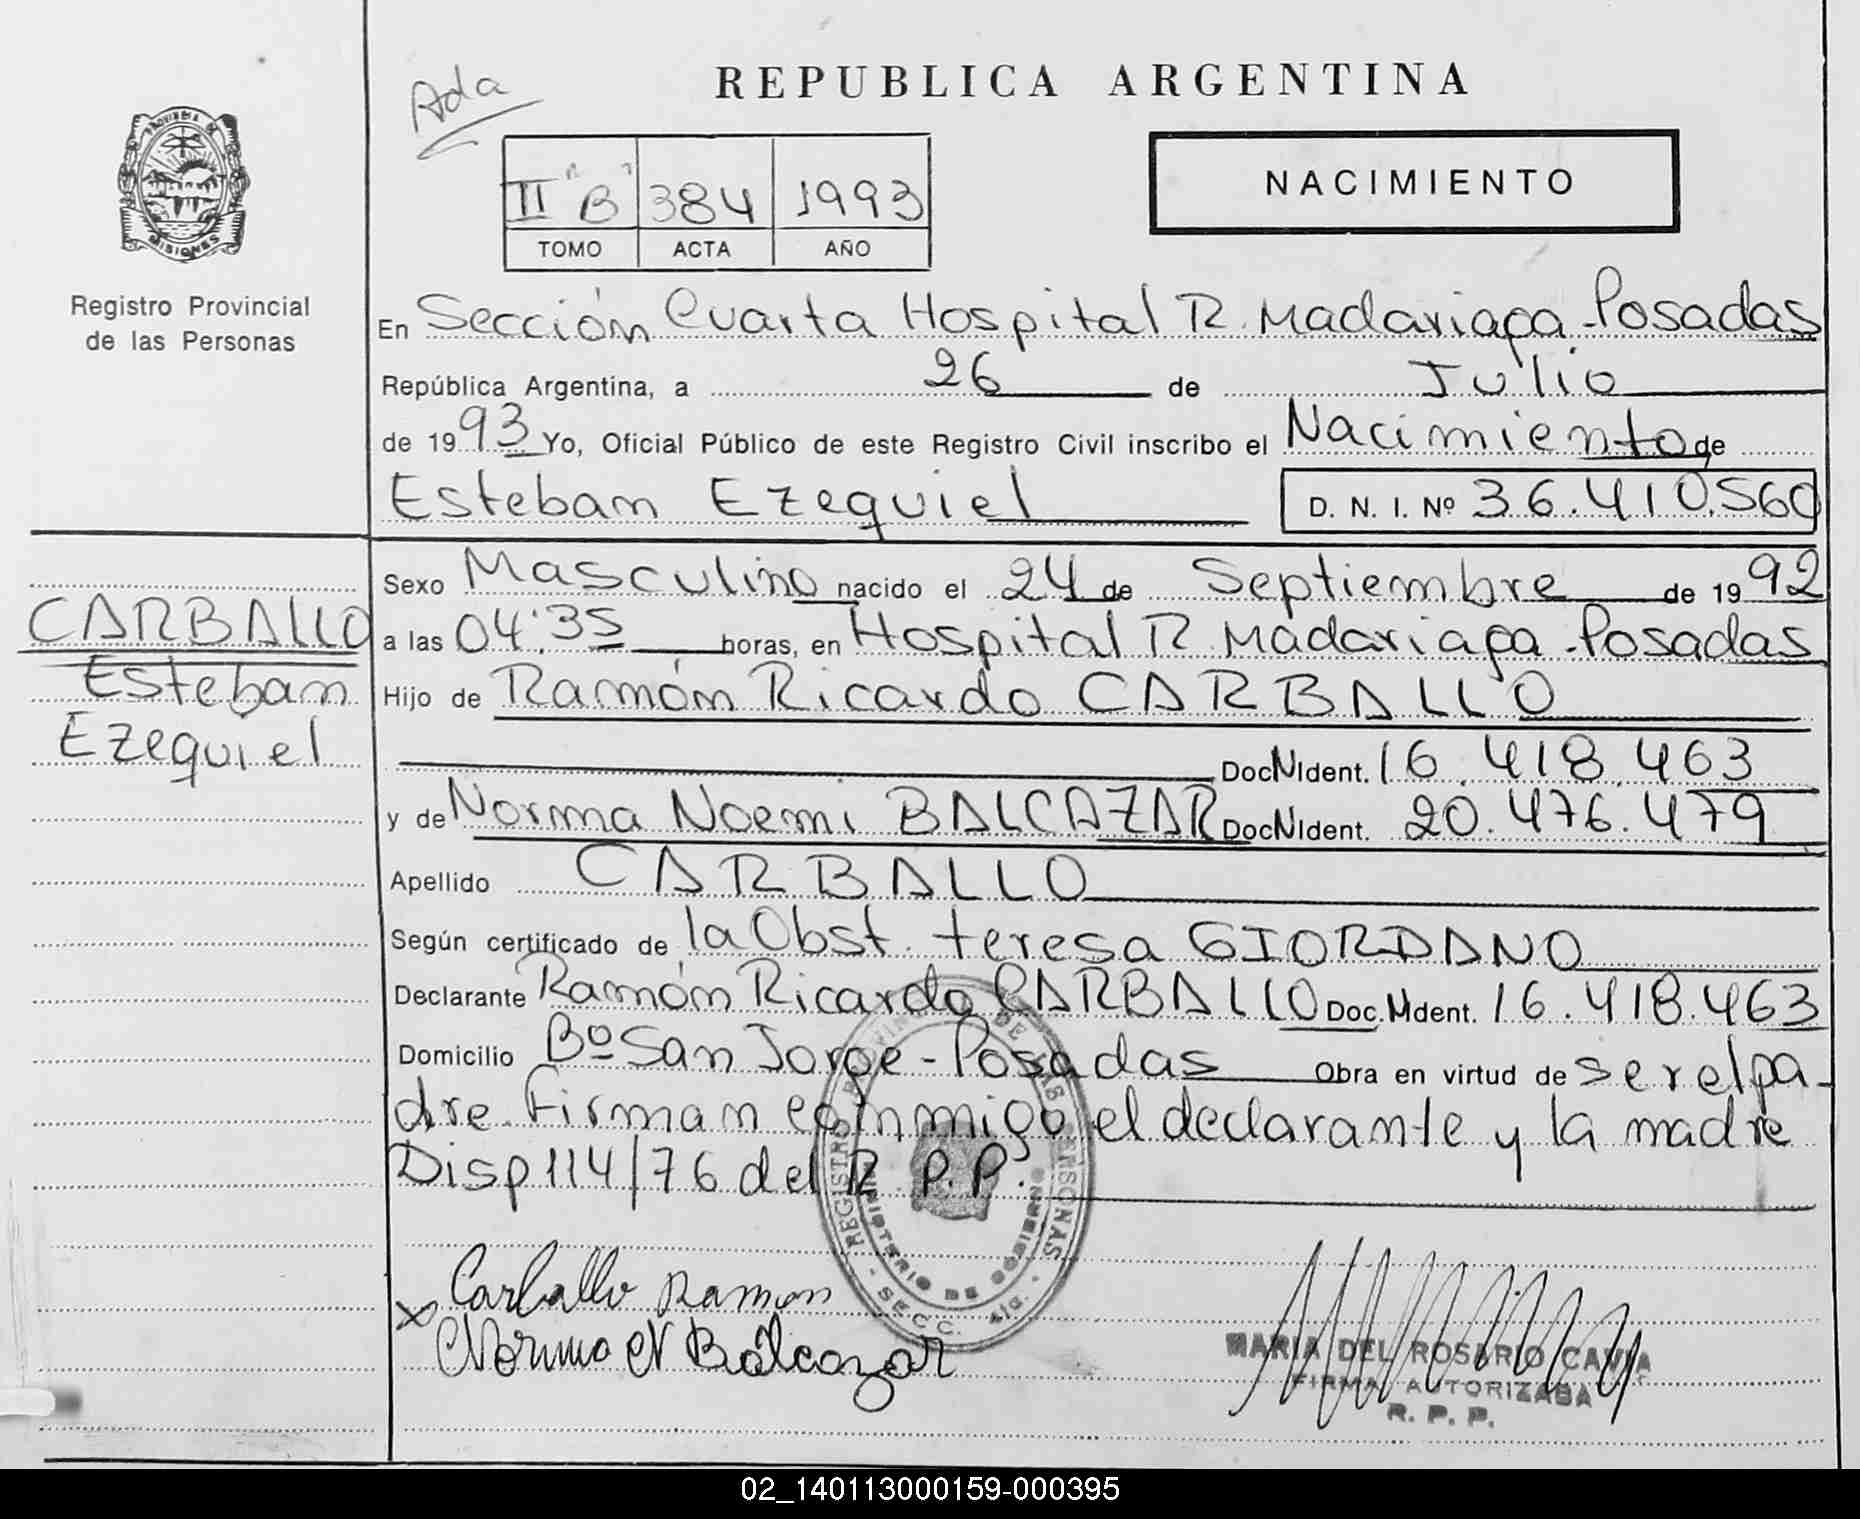 REPUBLICA ARGENTINA
Ada
PROVINCIA DE
MISIONES
Registro Provincial
de las Personas
II "B" 384 1993
TOMO ACTA AÑO
NACIMIENTO
En Sección Cuarta Hospital R. Madariaga-Posadas
República Argentina, a 26 de Julio
de 1993 Yo, Oficial Público de este Registro Civil inscribo el Nacimiento de
Esteban Ezequiel D. N. I. Nº 36.410.560
CARBALLO
Esteban
Ezequiel
Sexo Masculino nacido el 24 de Septiembre de 1992
a las 04:35 horas, en Hospital R. Madariaga-Posadas
Hijo de Ramón Ricardo CARBALLO
Doc N Ident. 16.418.463
y de Norma Noemi BALCAZAR Doc N Ident. 20.476.479
Apellido CARBALLO
Según certificado de la Obst. Teresa GIORDANO
Declarante Ramón Ricardo CARBALLO Doc. N Ident. 16.418.463
Domicilio Bº San Jorge-Posadas Obra en virtud de ser el pa-
dre. Firman conmigo el declarante y la madre
Disp 114/76 del R.P.P.
REGISTRO PROVINCIAL DE LAS PERSONAS
MINISTERIO DE GOBIERNO
SECC. 4ta.
Carballo Ramon
x Norma N Balcazar
MARIA DEL ROSARIO CAVIA
FIRMA AUTORIZADA
R. P. P.
02_140113000159-000395